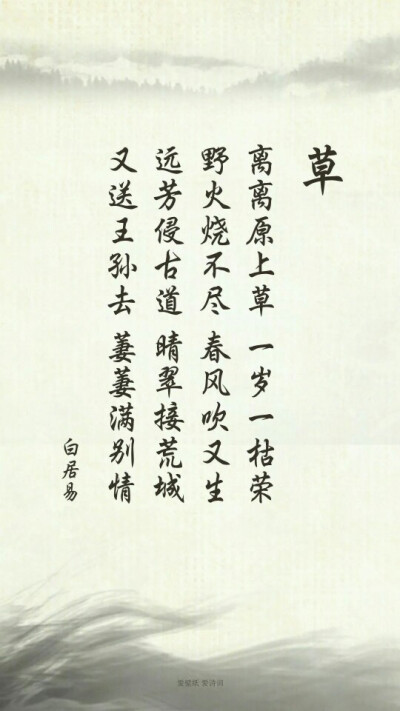 草
离离原上草 一岁一枯荣
野火烧不尽 春风吹又生
远芳侵古道 晴翠接荒城
又送王孙去 萋萋满别情
白居易